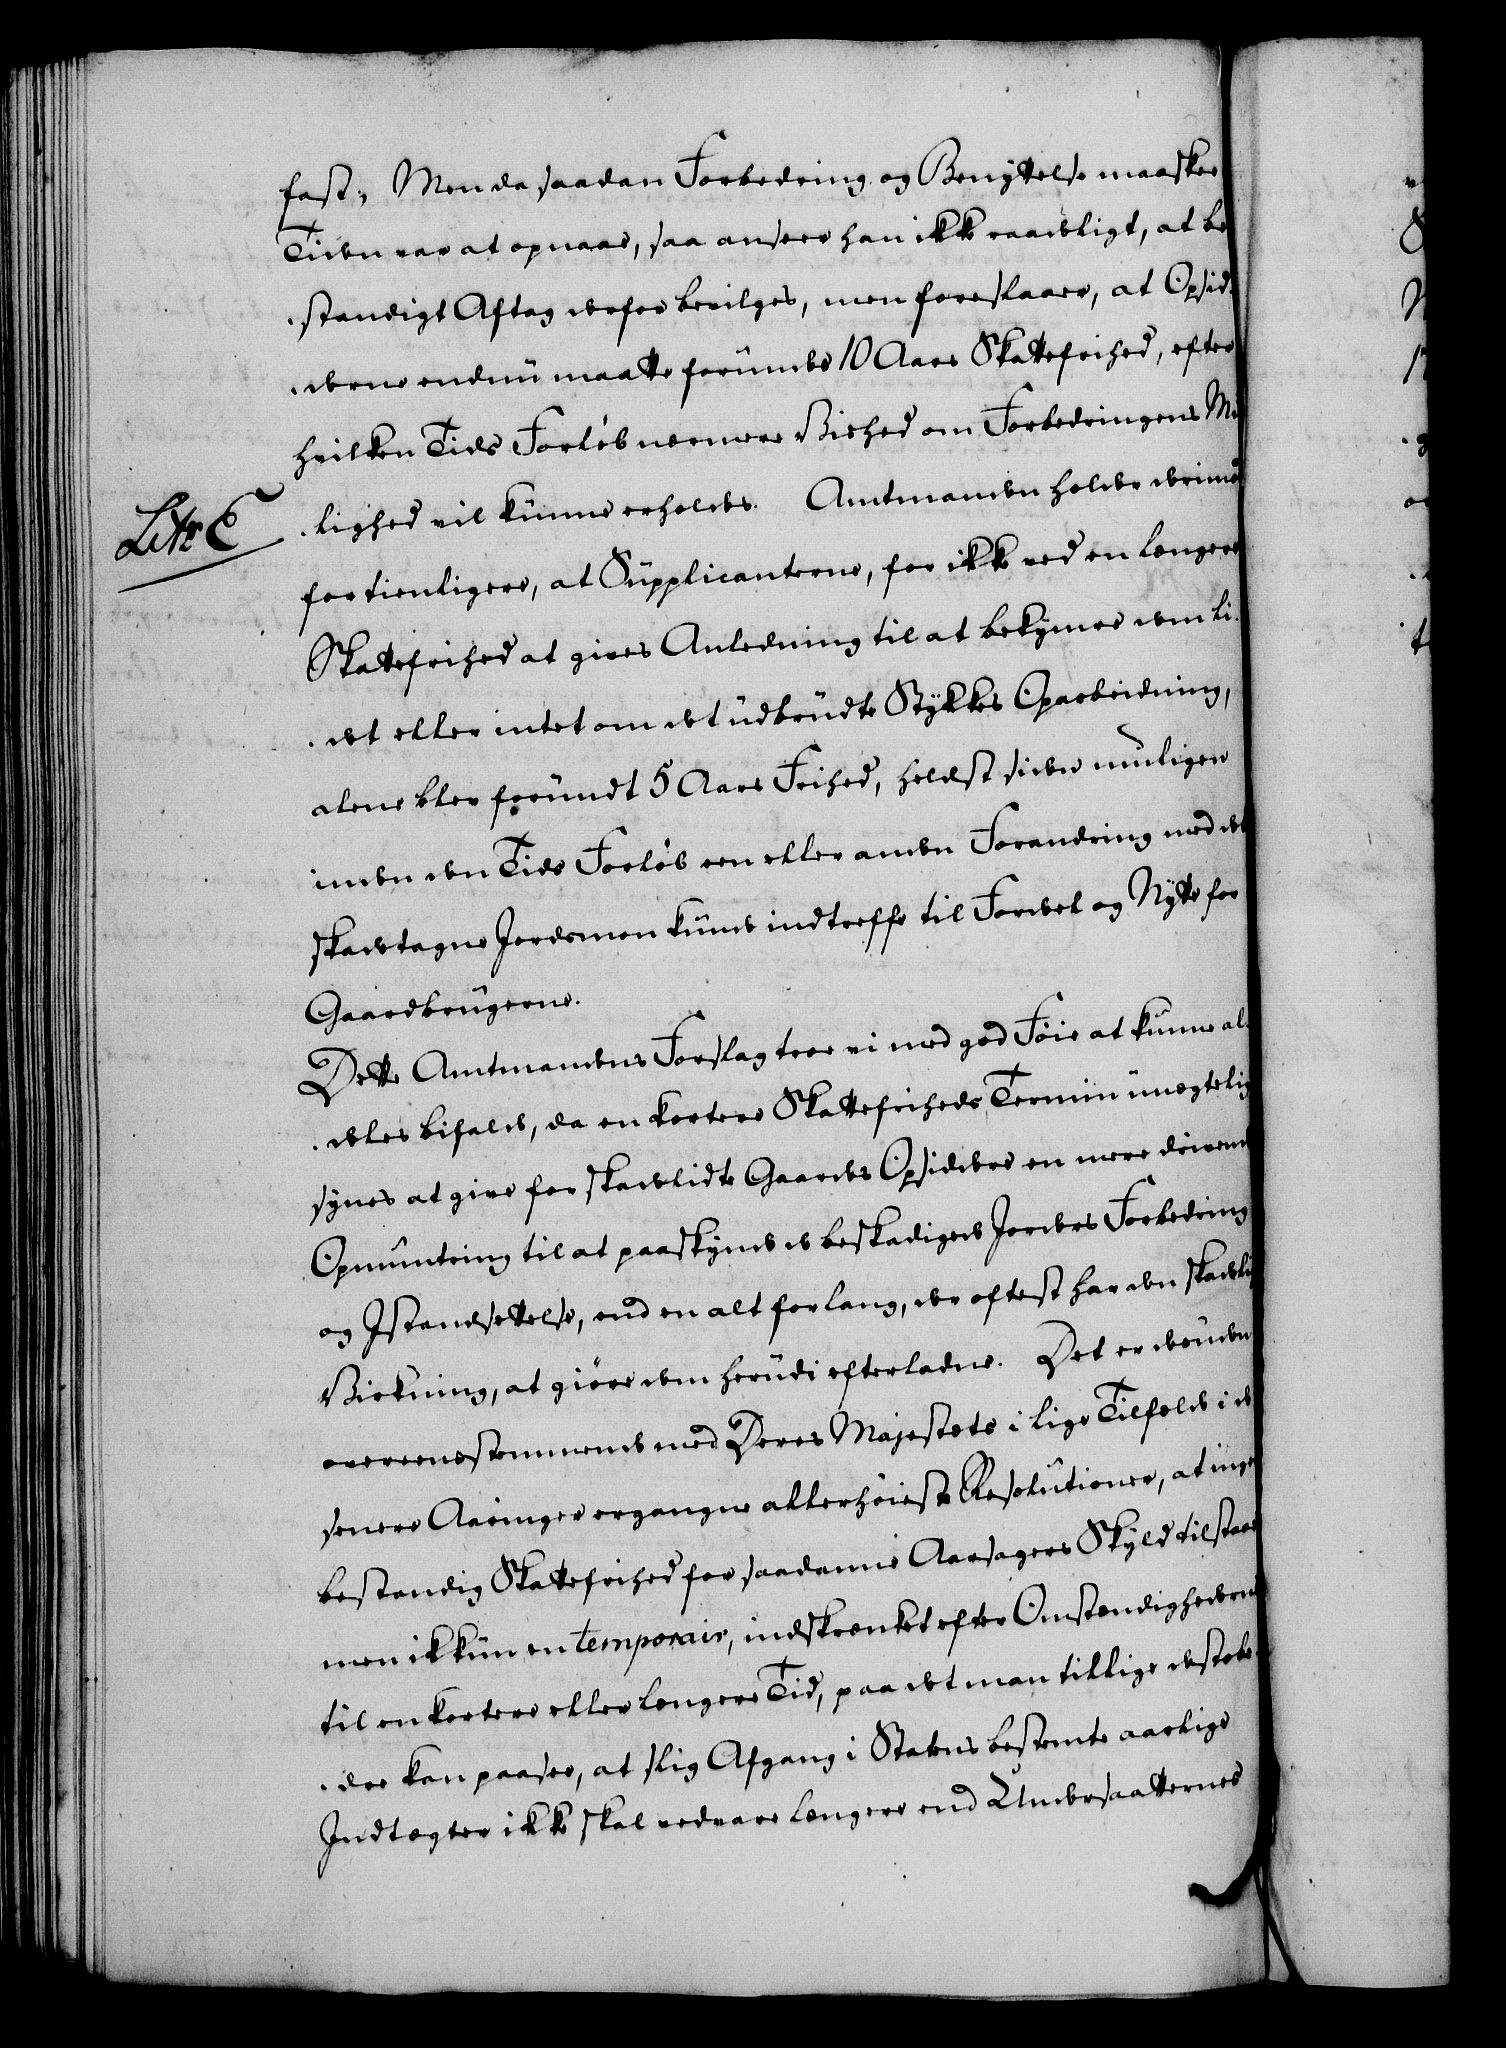 fast; Men da saadan Forbedring og Benyttelse maaskee
Tiden var at opnaae, saa ansees han ikke raadeligt, at be
standigt Aftag derfor bevilges, men foreslaaer, at Opsid
derne endnu maatte forundes 10 Aars Skattefrihed, efter
hvilken Tids Forløb nærmere Vished om Forbedringens Mu
lighed vil kunne erholdes. Amtmanden holder derimod
Litr C
for tienligere, at Supplicanterne, for ikke ved en længere
Skattefrihed at gives Anledning til at bekymre dem li
det eller intet om det udbrudte Stykkes Oparbeidning,
alene blev forundt 5 Aars Frihed, heldst siden muligen
inden den Tids Forløb een eller anden Forandring med det
skadetagne Jordsmon kunde indtreffe til Fordeel og Nytte for
Gaardbrugerne.
Dette Amtmandens Forslag troe vi med god Føie at kunne al
deles bifalde, da en kortere Skattefriheds Termin unægtelig
synes at give for skadelidte Gaardes Opsiddere en mere drivende
Opmuntring til at paaskynde de beskadigede Jorders Forbedring
og Istandsettelse, end en alt for lang, der oftest har den skadelig
Virkning, at giøre dem herudi efterladne. Det er desuden
overeensstemmende med Deres Majestæts i lige Tilfælde i de
senere Aaringer ergangne allerhøieste Resolutioner, at ingen
bestandig Skattefrihed for saadanne Aarsagers Skyld tilstaaes
men ikkun en temporair, indskrænket efter Omstændighederne
til en kortere eller længere Tid, paa det man tillige desto be
dre kan paasee, at slig Afgang i Statens bestemte aarlige
Indtægter ikke skal vedvare længere end Undersaatternes